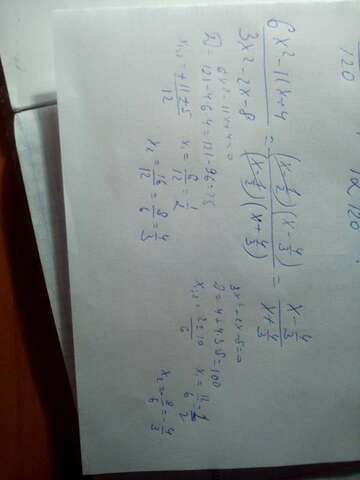 120
120
6x²-11x+4 / 3x²-2x-8 = (x-1/2)(x-4/3) / (x-1/2)(x+4/3) = x-4/3 / x+4/3
6x²-11x+4=0
D=121-4·6·4=121-96=25
x₁,₂=+11±5 / 12 x₁=6/12=1/2
x₂=16/12=8/6=4/3
3x²-2x-8=0
D=4+4·3·8=100
x₁,₂=2±10 / 6
x₂=-8/6=-4/3